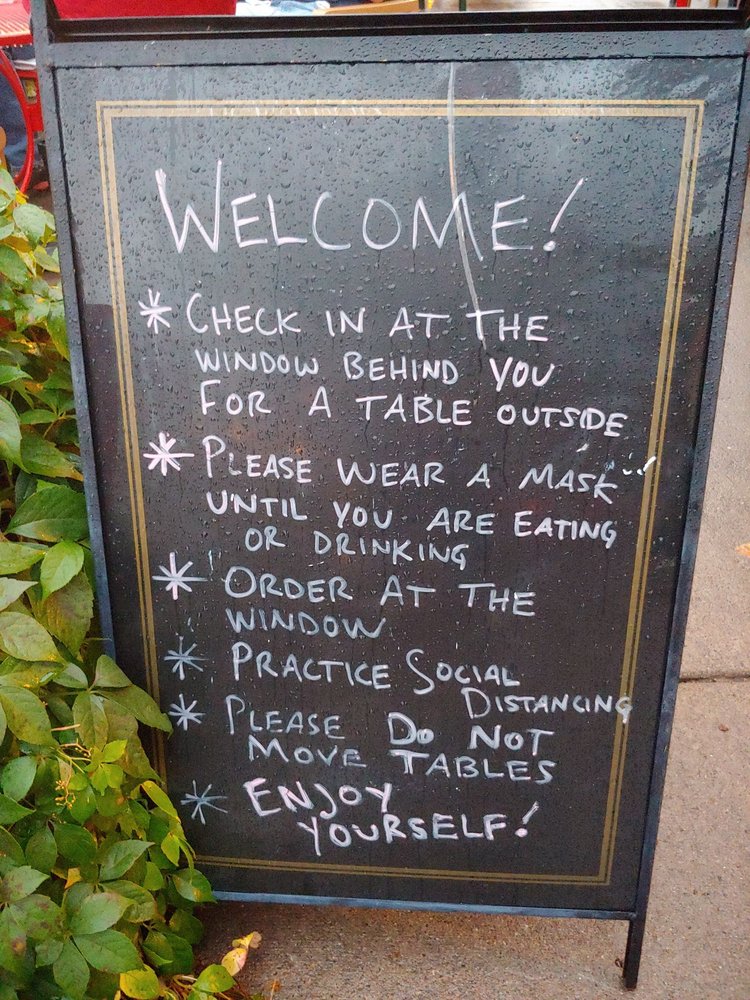 WELCOME!
* CHECK IN AT THE
WINDOW BEHIND YOU
FOR A TABLE OUTSIDE
* PLEASE WEAR A MASK
UNTIL YOU ARE EATING
OR DRINKING
* ORDER AT THE
WINDOW
* PRACTICE SOCIAL
DISTANCING
* PLEASE DO NOT
MOVE TABLES
* ENJOY
YOURSELF!